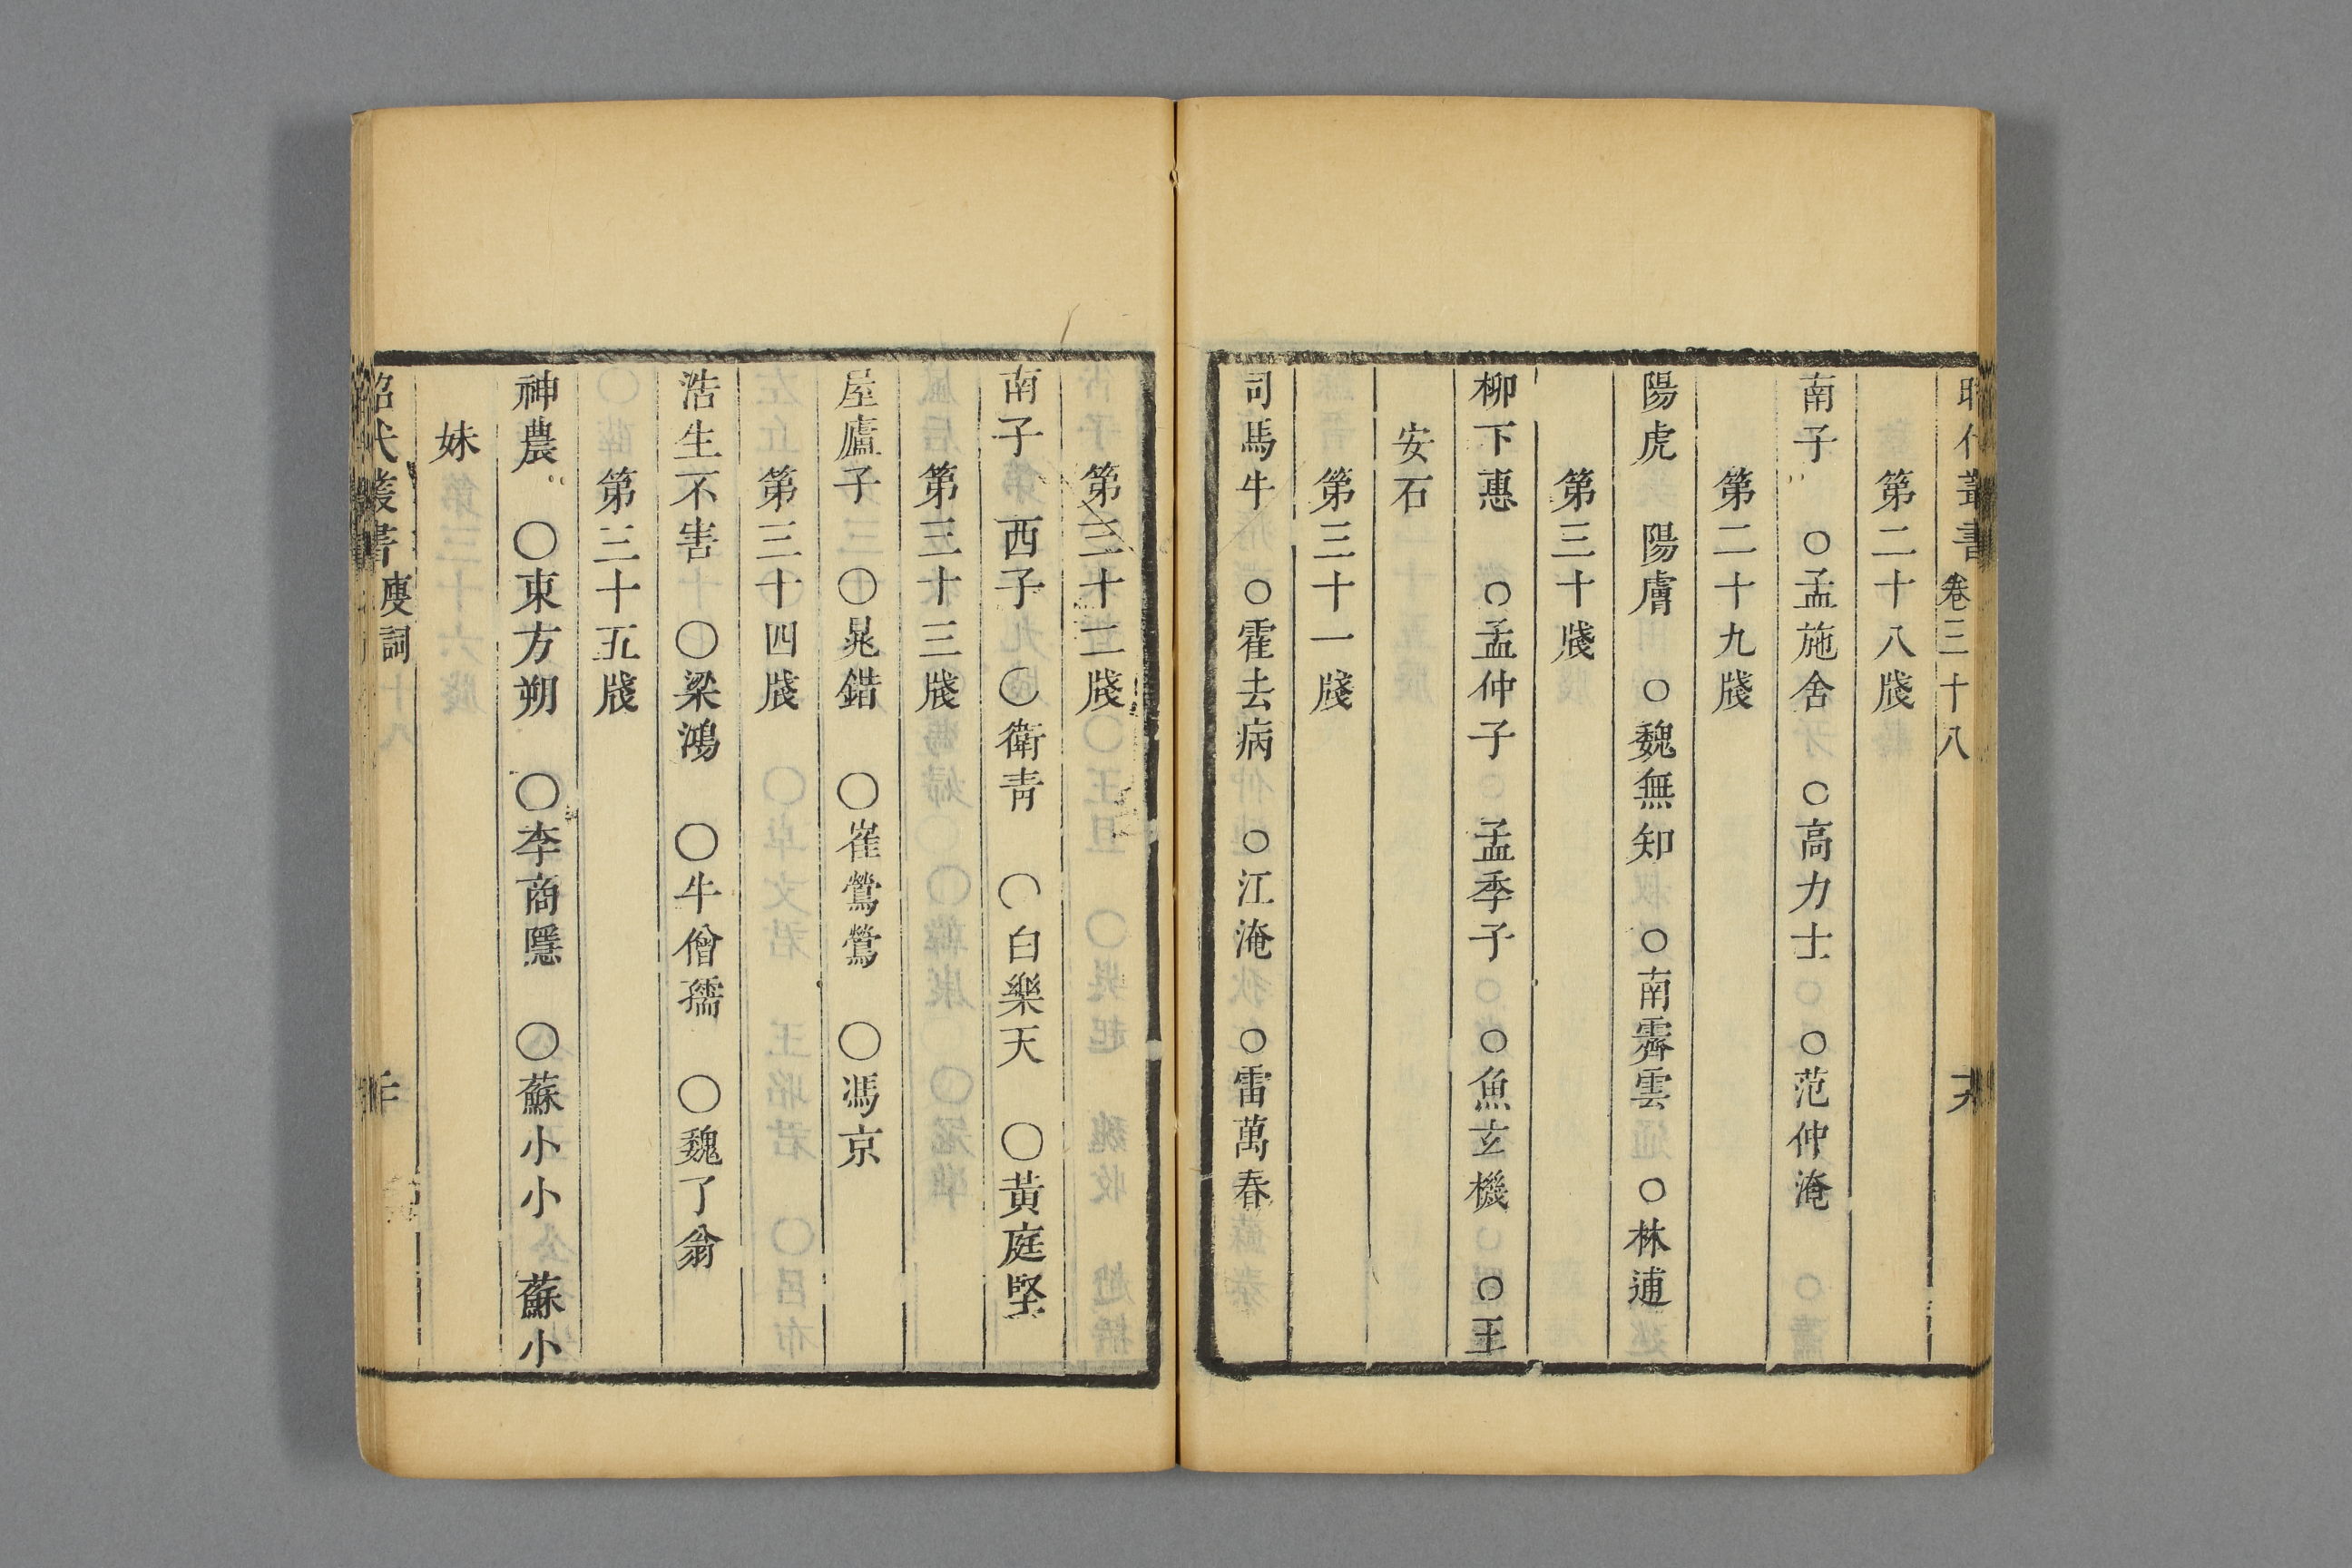 昭代叢書 卷三十八
第二十八牋
南子 ○孟施舍 ○高力士 ○范仲淹
第二十九牋
陽虎 陽膚 ○魏無知 ○南霽雲 ○林逋
第三十牋
柳下惠 ○孟仲子 孟季子 ○魚玄機 ○王
安石
第三十一牋
司馬牛 ○霍去病 ○江淹 ○雷萬春
第三十二牋
南子 西子 ○衛青 ○白樂天 ○黃庭堅
第三十三牋
屋廬子 ○晁錯 ○崔鶯鶯 ○馮京
第三十四牋
浩生不害 ○梁鴻 ○牛僧孺 ○魏了翁
第三十五牋
神農 ○東方朔 ○李商隱 ○蘇小小 蘇小
妹
昭代叢書 廋詞